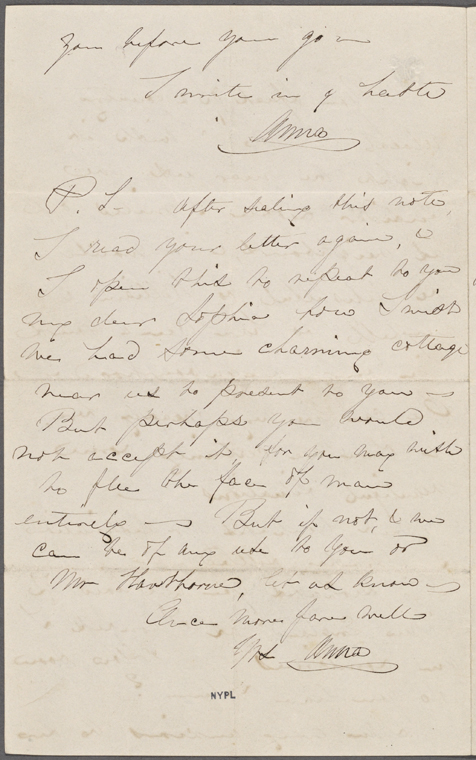 you before you go —
I write in g haste
Anna
P. S. After sealing this note,
I read your letter again, &
I open this to repeat to you,
my dear Sophia how I wish
we had some charming cottage
near us to present to you —
But perhaps you would
not accept it, for you may wish
to flee the face of man
entirely — But if not, & we
can be of any use to you or
Mr Hawthorne, let us know —
Once more farewell
Yrs Anna
NYPL